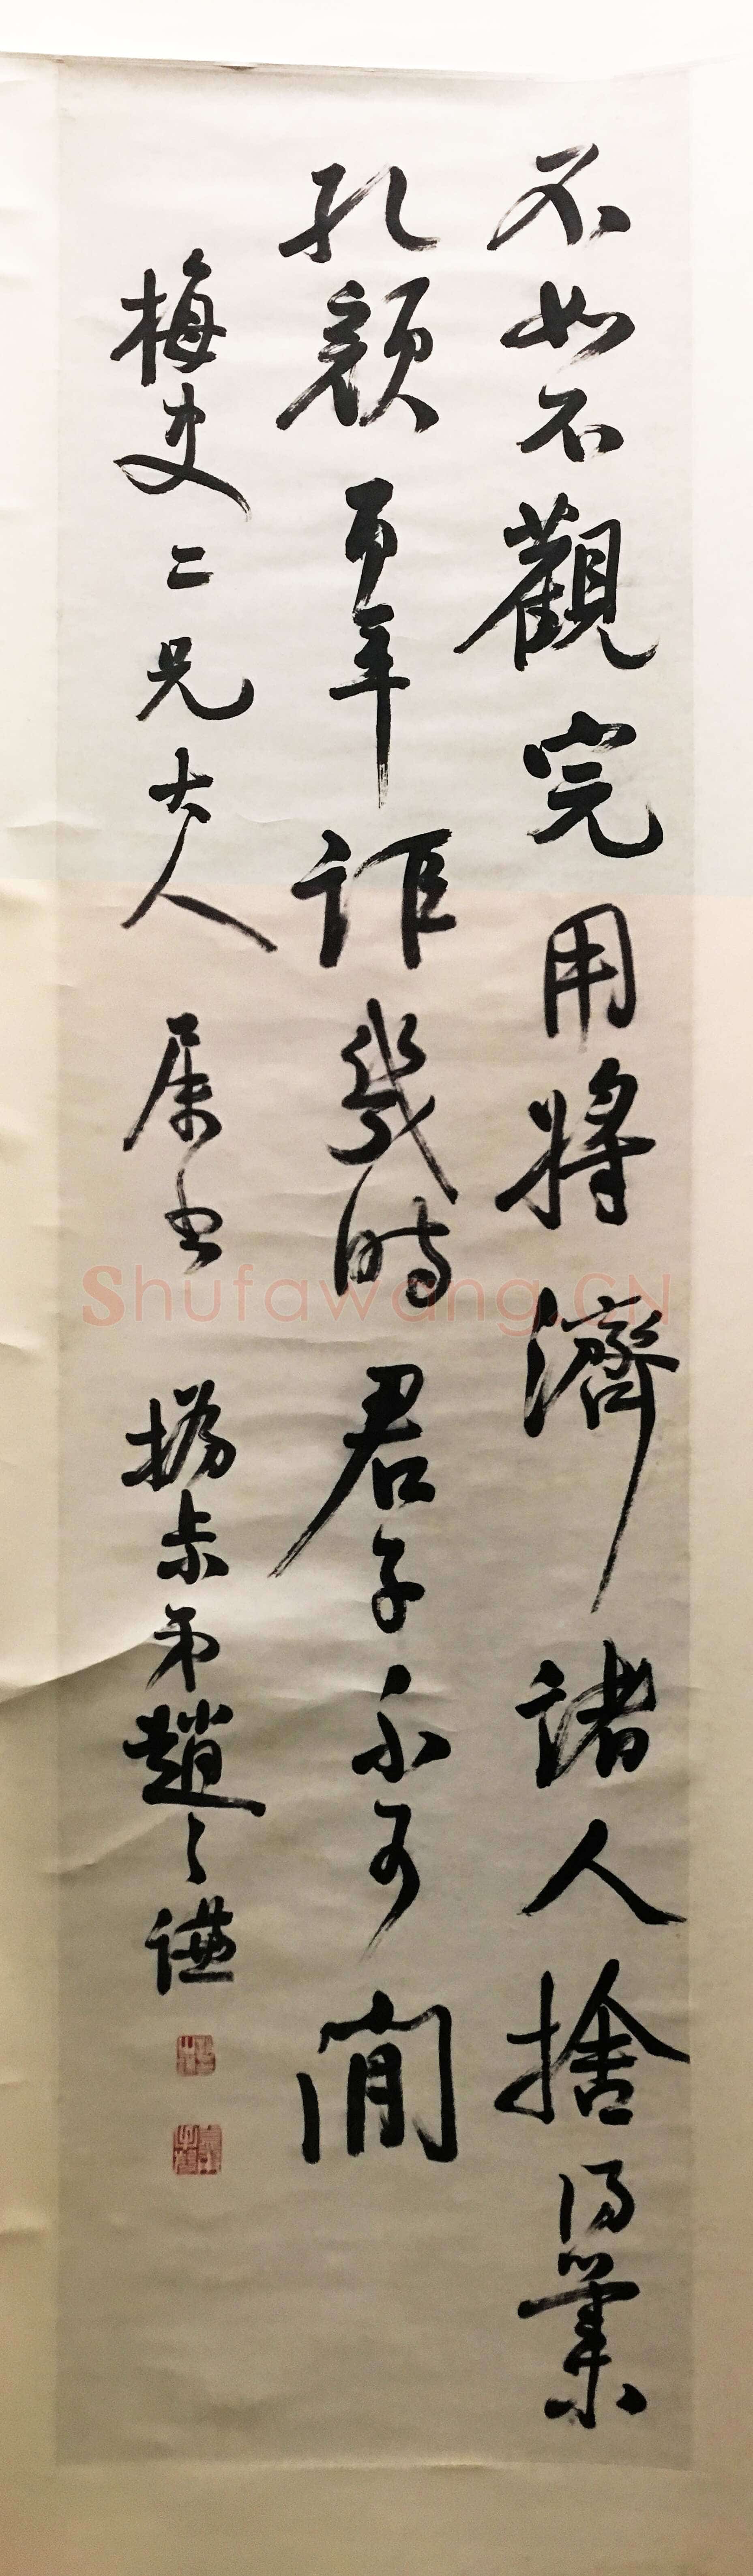 不如不觀完用將濟諸人捨得業
孔顏百年詎幾時君子不可閒
梅史二兄大人 属書 撝叔弟趙之謙
Shufawang.CN